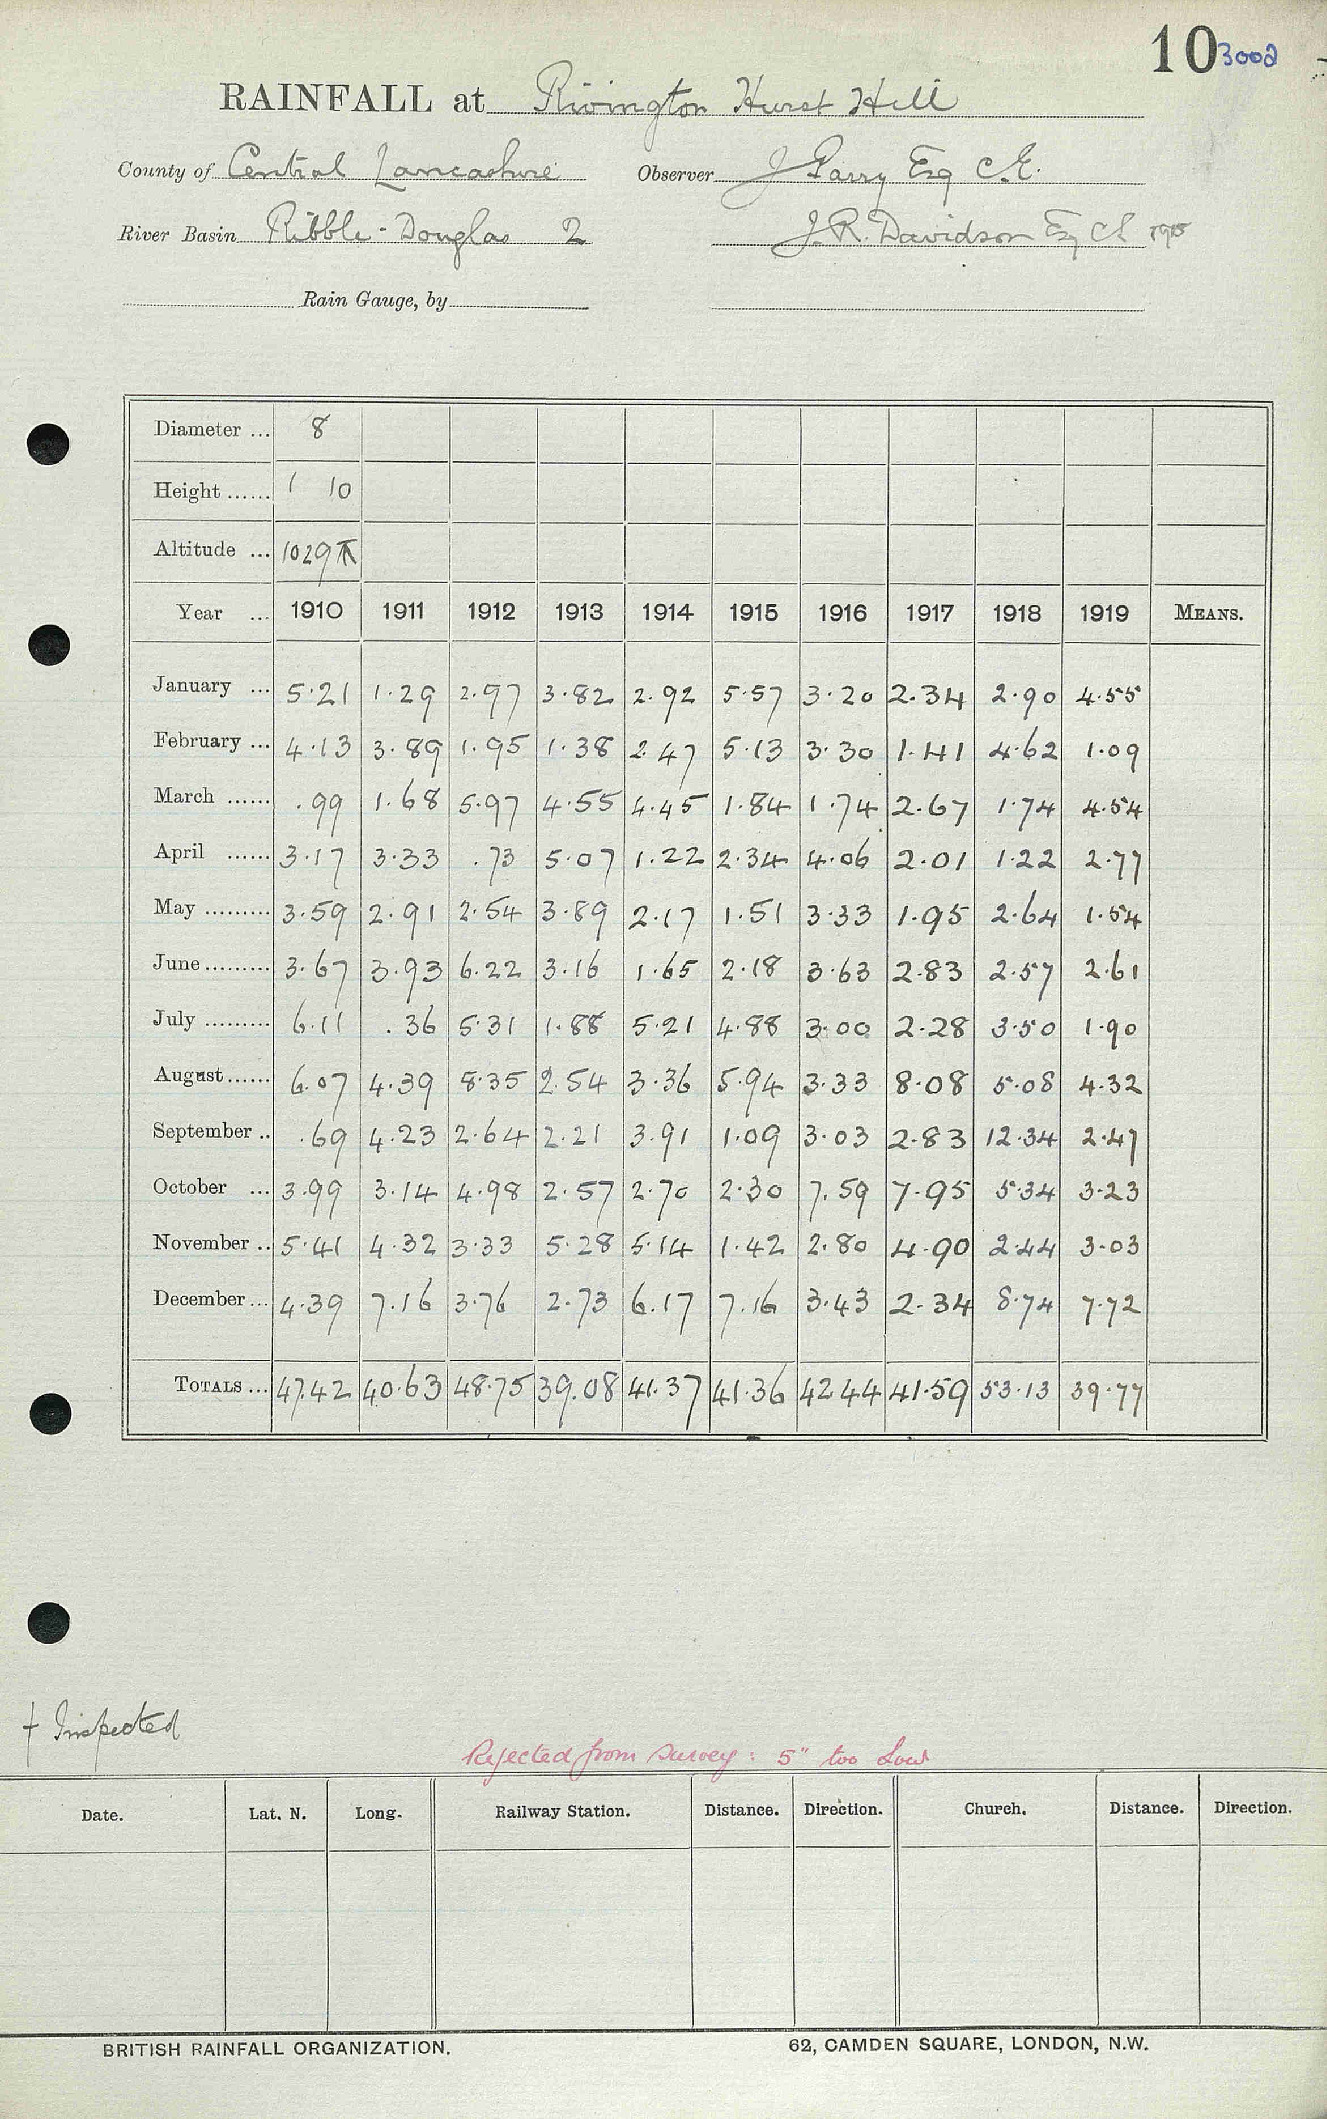 10 3002
RAINFALL at Rivington Hurst Hill
County of Central Lancashire Observer J Parry Esq C.E.
River Basin Ribble-Douglas 2 J. R. Davidson Esq CE 1915
Rain Gauge, by
Diameter ... 8
Height ...... 1 10
Altitude ... 1029
Year ... 1910 1911 1912 1913 1914 1915 1916 1917 1918 1919 MEANS.
January ... 5.21 1.29 2.97 3.82 2.92 5.57 3.20 2.34 2.90 4.55
February ... 4.13 3.89 1.95 1.38 2.47 5.13 3.30 1.41 4.62 1.09
March ...... .99 1.68 5.97 4.55 4.45 1.84 1.74 2.67 1.74 4.54
April ...... 3.17 3.33 .73 5.07 1.22 2.34 4.06 2.01 1.22 2.77
May ......... 3.59 2.91 2.54 3.89 2.17 1.51 3.33 1.95 2.64 1.54
June ......... 3.67 3.93 6.22 3.16 1.65 2.18 3.63 2.83 2.57 2.61
July ......... 6.11 .36 5.31 1.88 5.21 4.88 3.00 2.28 3.50 1.90
August ...... 6.07 4.39 8.35 2.54 3.36 5.94 3.33 8.08 5.08 4.32
September .. .69 4.23 2.64 2.21 3.91 1.09 3.03 2.83 12.34 2.47
October ... 3.99 3.14 4.98 2.57 2.70 2.30 7.59 7.95 5.34 3.23
November .. 5.41 4.32 3.33 5.28 5.14 1.42 2.80 4.90 2.44 3.03
December ... 4.39 7.16 3.76 2.73 6.17 7.16 3.43 2.34 8.74 7.72
TOTALS ... 47.42 40.63 48.75 39.08 41.37 41.36 42 44 41.59 53.13 39.77
† Inspected
Rejected from Survey: 5" too low
Date. Lat. N. Long. Railway Station. Distance. Direction. Church. Distance. Direction.
BRITISH RAINFALL ORGANIZATION. 62, CAMDEN SQUARE, LONDON, N.W.